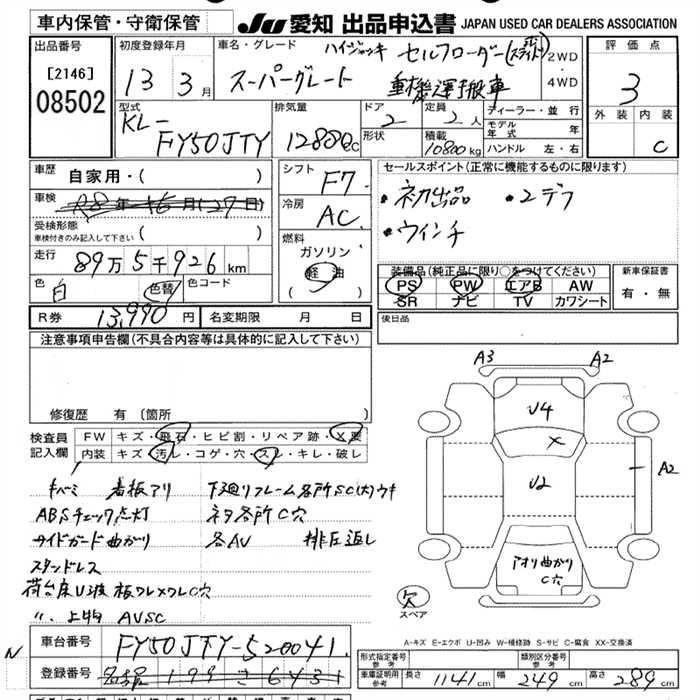 車内保管・守衛保管
JU 愛知 出品申込書 JAPAN USED CAR DEALERS ASSOCIATION
出品番号
[2146]
08502
初度登録年月
13 3月
車名・グレード
ハイジャッキ セルフローダー(スライド)
スーパーグレート 重機運搬車
2WD
・
4WD
評価点
3
外装 内装
C
型式
KL-
FY50JTY
排気量
12880cc
ドア
2
形状
定員
2人
積載
10800kg
ディーラー・並行
モデル年式
ハンドル 左・右
車歴
自家用・( )
車検
R8年 16月(27日)
受検形態
車検付きのみ記入して下さい ( )
走行
89万5千926km
色
白
色替
色コード
シフト
F7
冷房
AC
燃料
ガソリン
軽油
( )
セールスポイント(正常に機能するものに限ります)
・初出品 ・2デフ
・ウインチ
装備品(純正品に限り○をつけてください)
PS PW エアB AW
SR ナビ TV カワシート
新車保証書
有・無
R券 13,990円 名変期限 月 日
後日品
注意事項申告欄(不具合内容等は具体的に記入して下さい)
修復歴 有(箇所 )
検査員
記入欄
FW キズ・飛石・ヒビ割・リペア跡・X要
内装 キズ・汚レ・コゲ・穴・スレ・キレ・破レ
キバミ 看板アリ 下廻りフレーム各所SC(大)ウキ
ABSチェック点灯 ネタ各所C穴
サイドガード曲がり 各AV 排圧返し
スタンドレス
荷台床U3彼 板ワレメクレC穴
〃 上物 AVSC
A3 A2
U4
X
U2
A2
アオリ曲がり
C穴
欠
スペア
A-キズ E-エクボ U-凹み W-補修跡 S-サビ C-腐食 XX-交換済
N
車台番号 FY50JTY-520041
登録番号 199 さ 6431
形式指定番号
参考
類別区分番号
参考
車庫証明用
参考
長さ 1141cm 幅 249cm 高さ 289cm